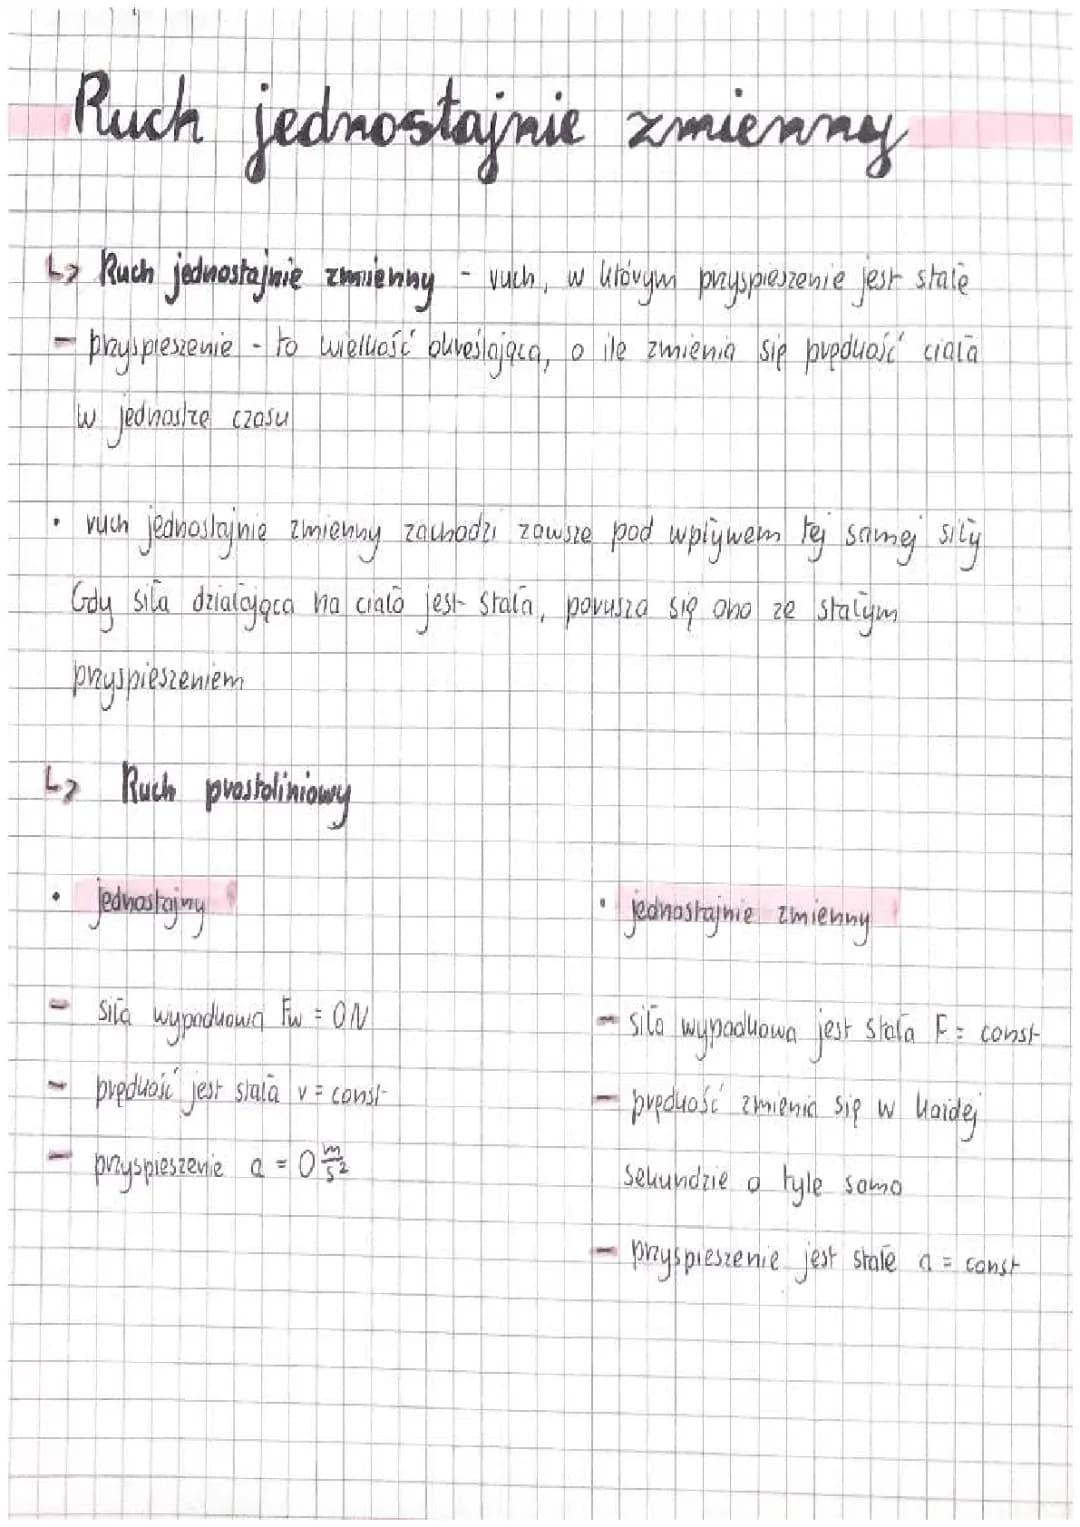 Ruch jednostajnie zmienny
↳ Ruch jednostajnie zmienny - ruch, w którym przyspieszenie jest stałe
- przyspieszenie - to wielkość określająca, o ile zmienia się prędkość ciała
w jednostce czasu
• ruch jednostajnie zmienny zachodzi zawsze pod wpływem tej samej siły
Gdy siła działająca na ciało jest stała, porusza się ono ze stałym
przyspieszeniem
↳ Ruch prostoliniowy
• jednostajny
- siła wypadkowa Fw = 0N
- prędkość jest stała v = const
- przyspieszenie a = 0 m/s²
• jednostajnie zmienny
- siła wypadkowa jest stała F = const
- prędkość zmienia się w każdej
sekundzie o tyle samo
- przyspieszenie jest stałe a = const